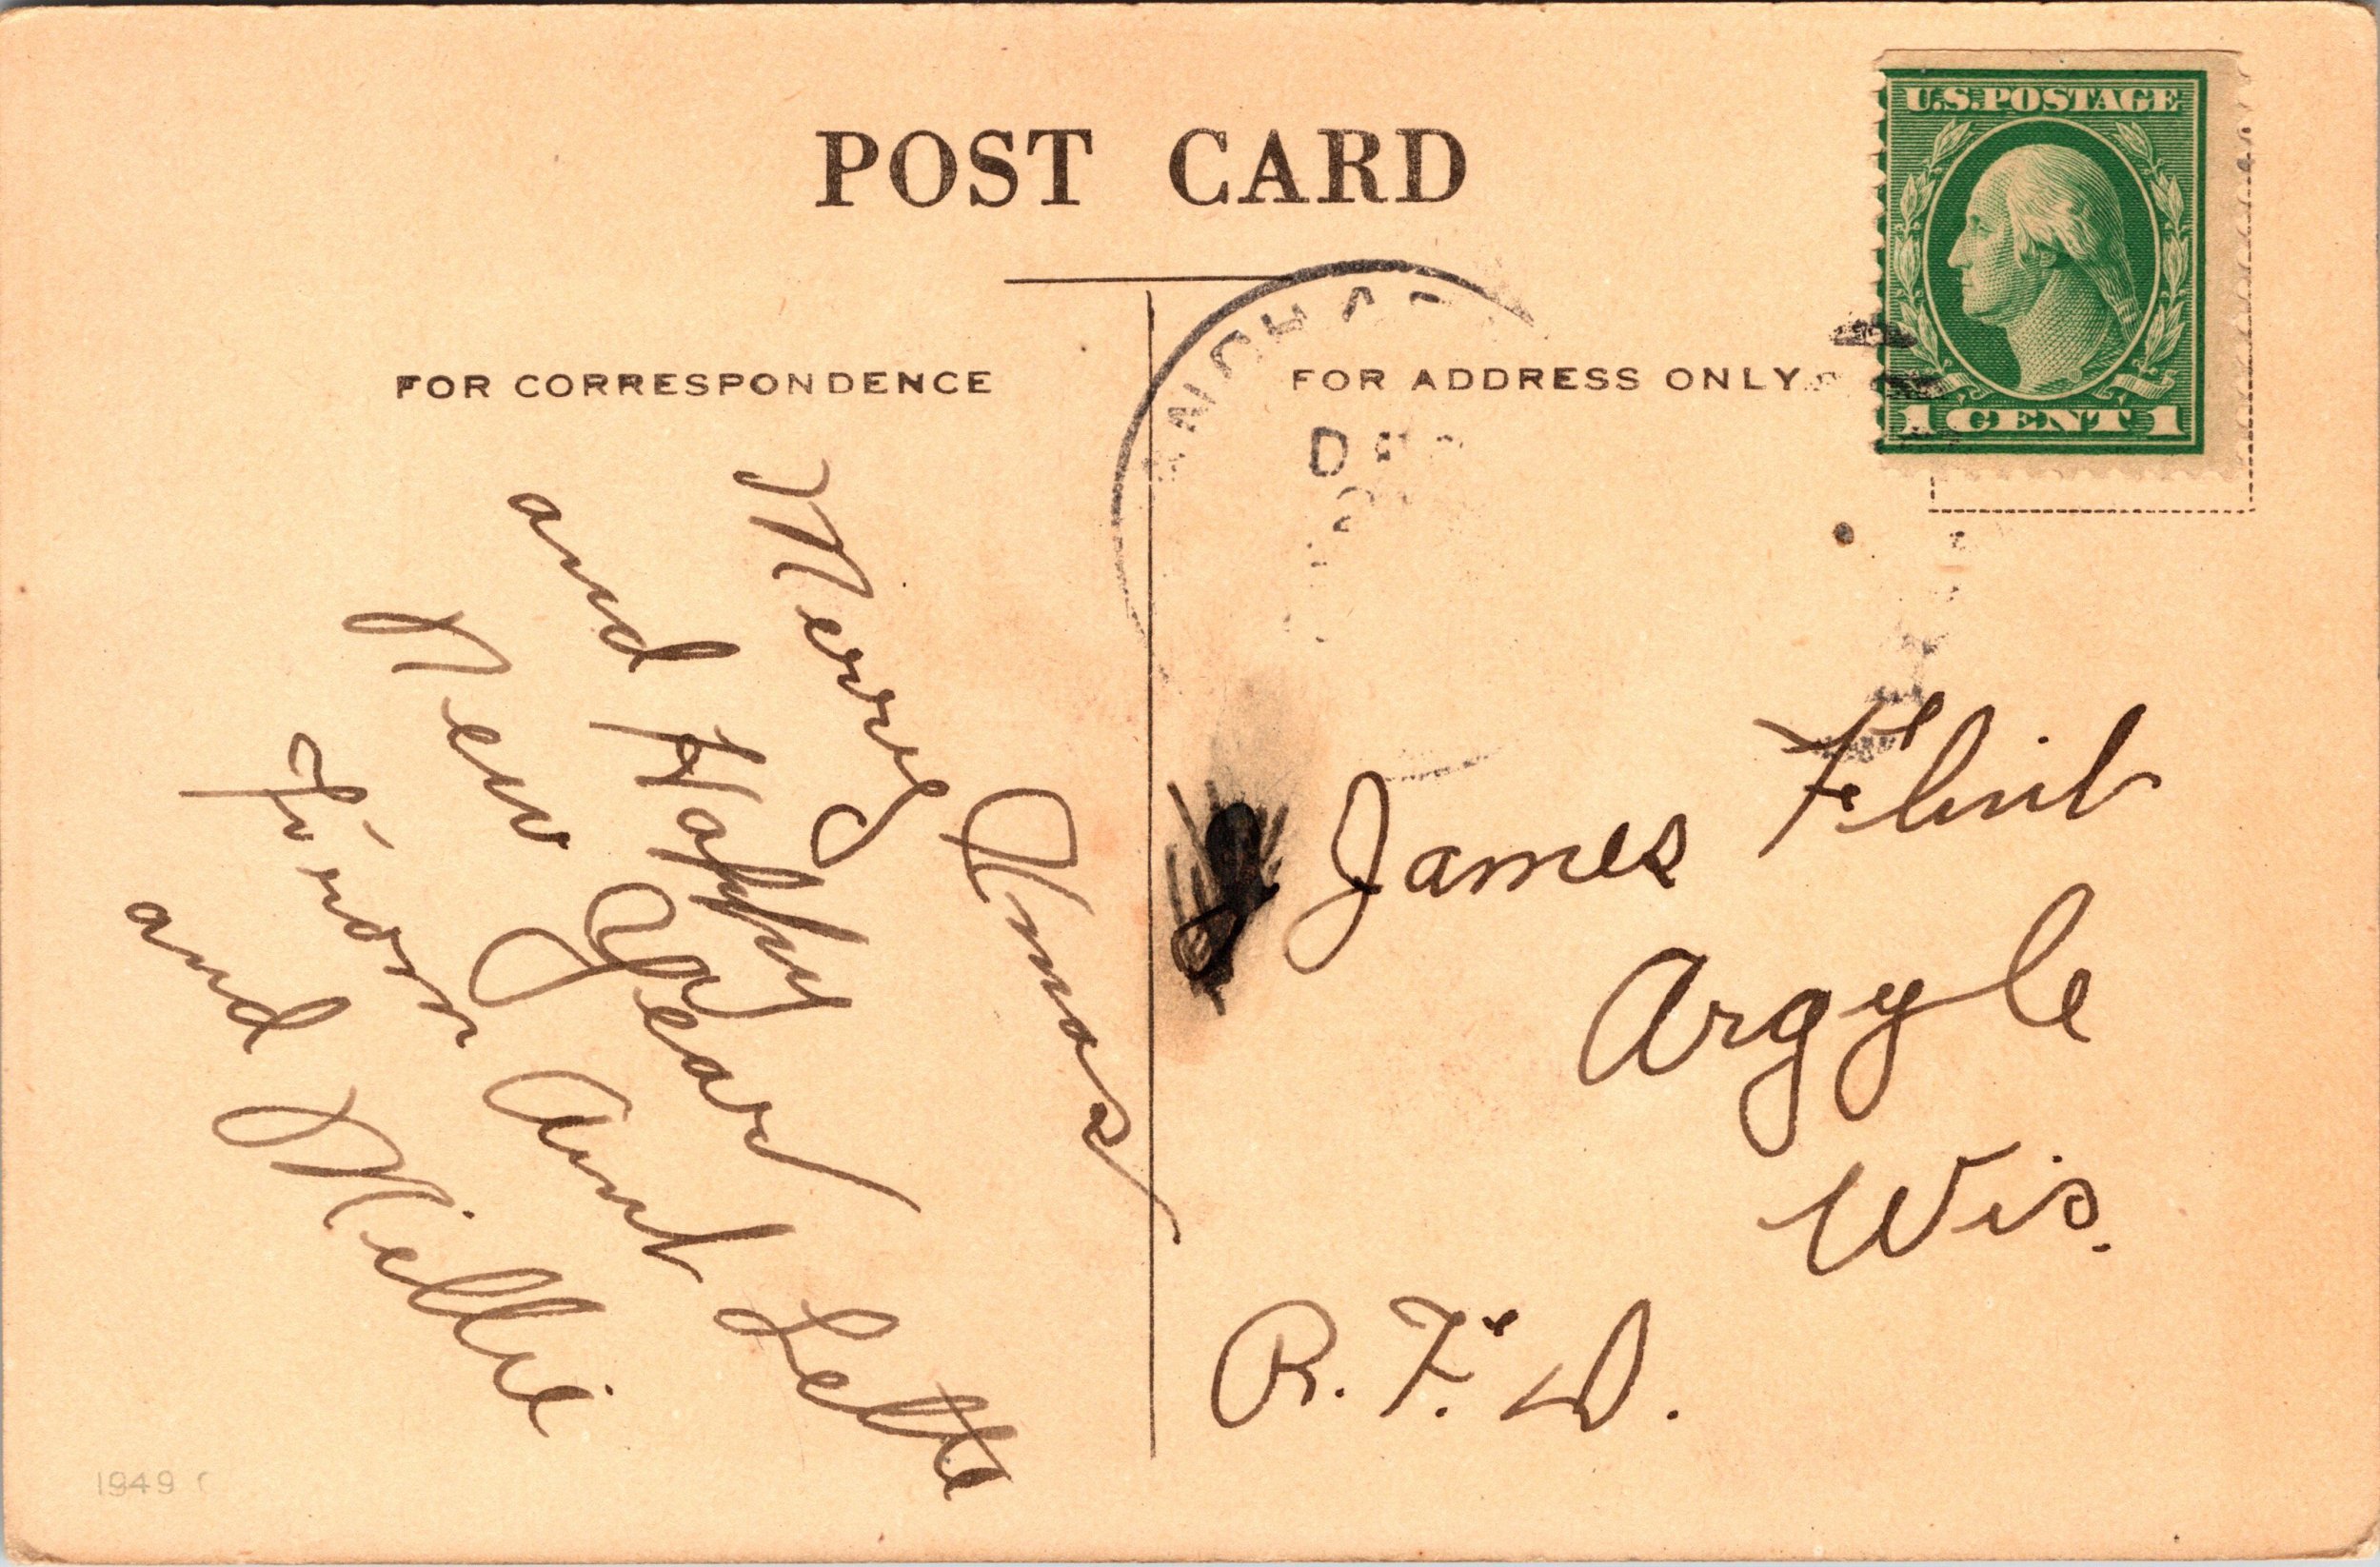 POST CARD
U.S. POSTAGE
1 CENT 1
FOR CORRESPONDENCE
FOR ADDRESS ONLY
Merry Xmas
and Happy
New Year
from Aunt Lettie
and Millie
James Flint
Argyle
Wis.
R. F. D.
1949